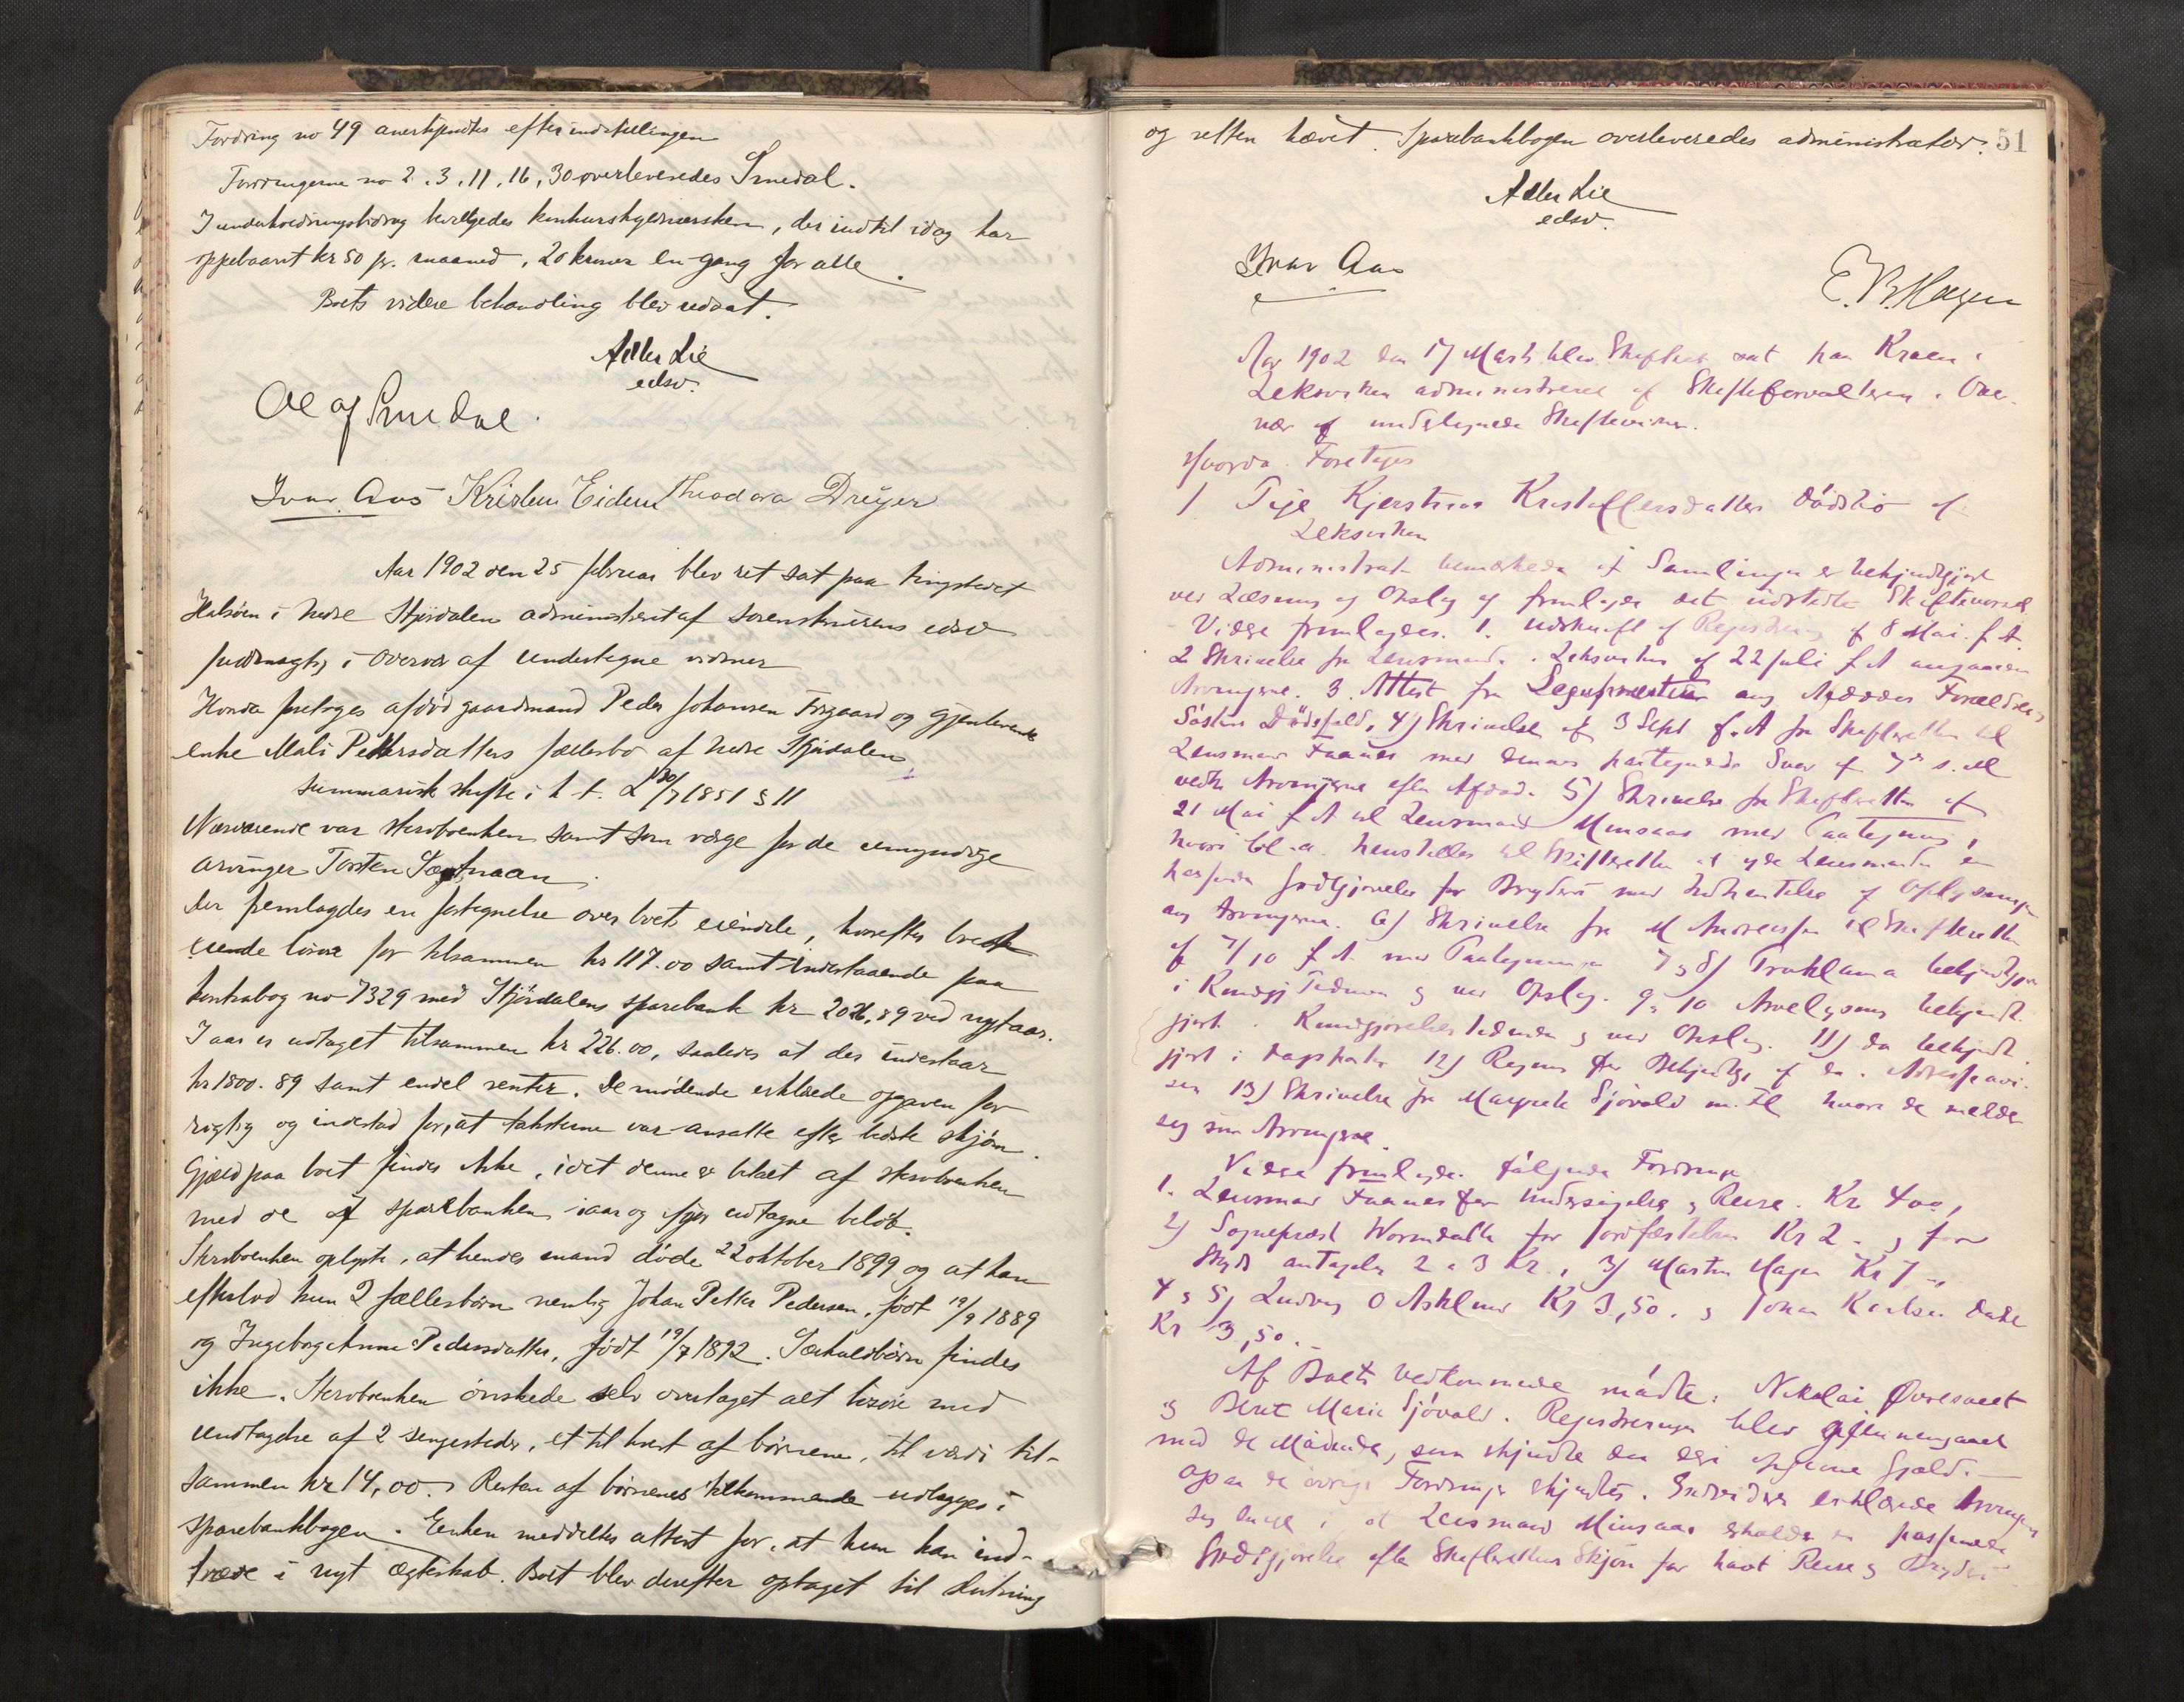 Fordring no 49 anerkjendtes efter indstillingen
Fordringerne no 2, 3, 11, 16, 30 overleveredes Smedal.
I underholdningsbidrag bevilgedes konkursskyldnersken, der indtil idag har
oppebaaret kr 50 pr. maaned, 20 kroner en gang for alle.
Boets videre behandling blev udsat.
Adler Lie
edsv.
Ole Smedal.
Ivar Aas Kristen Eidem Theodora Dreyer
Aar 1902 den 25 februar blev ret sat paa tingstedet
Halsøen i nedre Stjørdalen administreret af sorenskriverens edsv
fuldmægtig i overvær af undertegnede vidner
Hvorda foretoges afdød gaardmand Peder Johansen Forgaard og gjenlevende
enke Mali Pettersdatters fællesbo af nedre Stjørdalen
summarisk skifte i h. t. L 30/7 1851 § 11
Nærværende var sterboenken samt som værge for de umyndige
arvinger Torsten
der fremlagdes en fortegnelse over boets eiendele, hvorefter boet
eiende løsøre for tilsammen kr 117.00 samt indestaaende paa
kontrabog no 7329 med Stjørdalens sparebank kr 2026,89 ved nytaar.
I aar er udtaget tilsammen kr 226.00, saaledes at der indestaar
kr 1800.89 samt endel renter. De mødende erklærede opgaven for
rigtig og indestod for, at taksterne var ansatte efter bedste skjøn.
Gjæld paa boet findes ikke, idet denne er betalt af sterboenken
med de af sparebanken iaar og ifjor udtagne beløb.
Sterboenken oplyste, at hendes mand døde 22 oktober 1899 og at han
efterlod kun 2 fællesbørn nemlig Johan Petter Pedersen, født 19/9 1889
og Ingeborg Anne Pedersdatter, født 19/7 1892. Særkuldsbørn findes
ikke. Sterboenken ønskede selv overtaget alt løsøre med
undtagelse af 2 sengesteder, et til hvert af børnene, til værdi til-
sammen kr 14,00. Resten af børnenes tilkommende udlægges i
sparebankbogen. Enken meddeltes attest for, at hun kan ind-
træde i nyt ægteskab. Boet blev derefter optaget til slutning
og retten hævet. Sparebankbogen overleveredes administrator. 51
Adler Lie
edsv.
Ivar Aas
E. B. Hagen
Aar 1902 den 17 Marts blev Skifteret sat paa Kraaen i
Leksviken administreret af Skifteforvalteren i Over-
vær af undertegnede Skiftevidner.
Hvorda Foretages
1 Teje Kjerstine Kristoffersdatters Dødsbo af
Leksviken
Administrator bemærkede at Samlingen er bekjendtgjort
ved Læsning og Opslag og fremlagde det udstedte Skiftevarsel
Videre fremlagdes. 1. Udskrift af Registrering af 8 Mai f. A.
2 Skrivelse fra Lensmanden i Leksviken af 22 Juli f A angaaende
Arvingerne. 3. Attest fra Sognepræsten ang Afdødes Forældres,
Søsters Dødsfald, 4) Skrivelse af 3 Sept f. A fra Skifteretten til
Lensmand Faanes med dennes paategnede Svar af 7de s. M
vedk Arvingerne efter Afdøde. 5) Skrivelse fra Skifteretten af
21 Mai f A til Lensmand Minsaas med Paategning,
hvori bl. a. henstilles til Skifteretten at yde Lensmanden en
passende Godtgjørelse for Bryderi med Indhentelse af Oplysninger
ang Arvingerne. 6) Skrivelse fra M Andreassen til Skifteretten
af 7/10 f A. med Paategninger 7 & 8) Proklama bekjendtgjort
i Kundgj Tidende og ved Opslag. 9 & 10 Arvelysning bekjendt-
gjort i Kundgjørelsestidende og ved Opslag. 11) da bekjendt-
gjort i Dagsposten 12) Regning for Bekjendtgj af da. i Adresseavi-
sen 13) Skrivelse fra Margrete Sjøvold m. fl hvori de melde
sig som Arvinger.
Videre fremlagdes følgende Fordringer
1. Lensmand Faanes for Undersøgelse og Reise. Kr 4 00,
2) Sognepræst Wormdahl for Jordfæstelse Kr 2 - og for
Skyds antagelig 2 a 3 Kr., 3) Martin Hagen Kr 7 -,
4 & 5) Ludvig O Asklund Kr 3,50. og Johan Karlsen
Kr 3,50.
Af Boets Vedkommende mødte: Nikolai Øvresveet
og Beret Marie Sjøvold. Registreringen blev gjennemgaaet
med de Mødende, som skjendte den deri opgivne Gjæld. -
Ogsaa de øvrige Fordringer skjendtes. Endvidere erklærede Arvingerne
sig enige i at Lensmand Minsaas erholder en passende
Godtgjørelse efter Skifterettens Skjøn for havt Reise og Bryderi